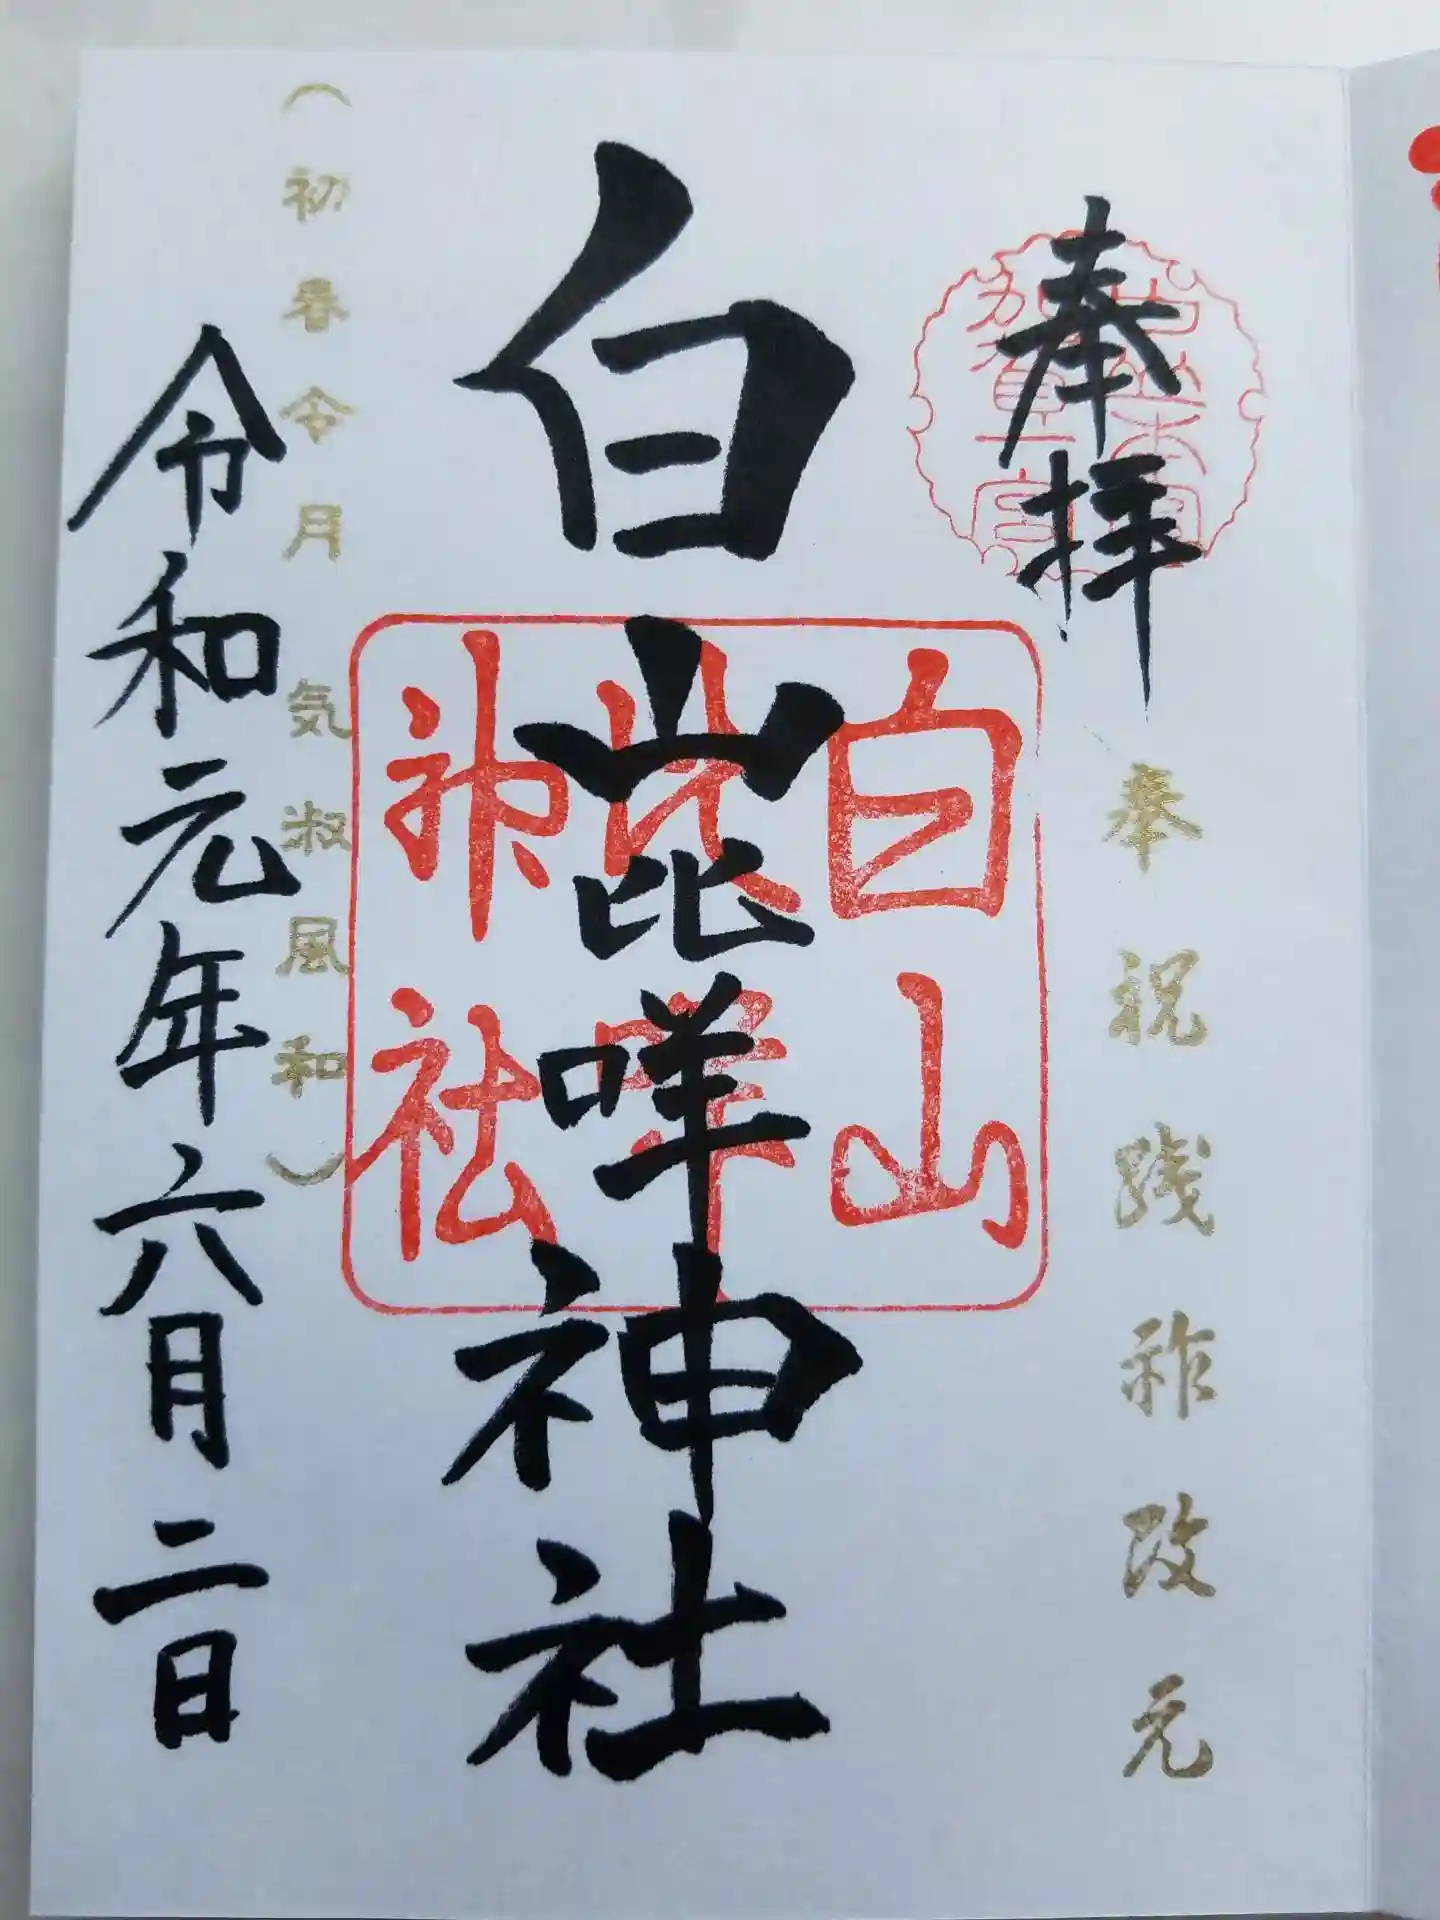 奉拝
加賀一宮
奉祝践祚改元
白山比咩神社
白山
比咩
神社
（初春令月　気淑風和）
令和元年六月二日